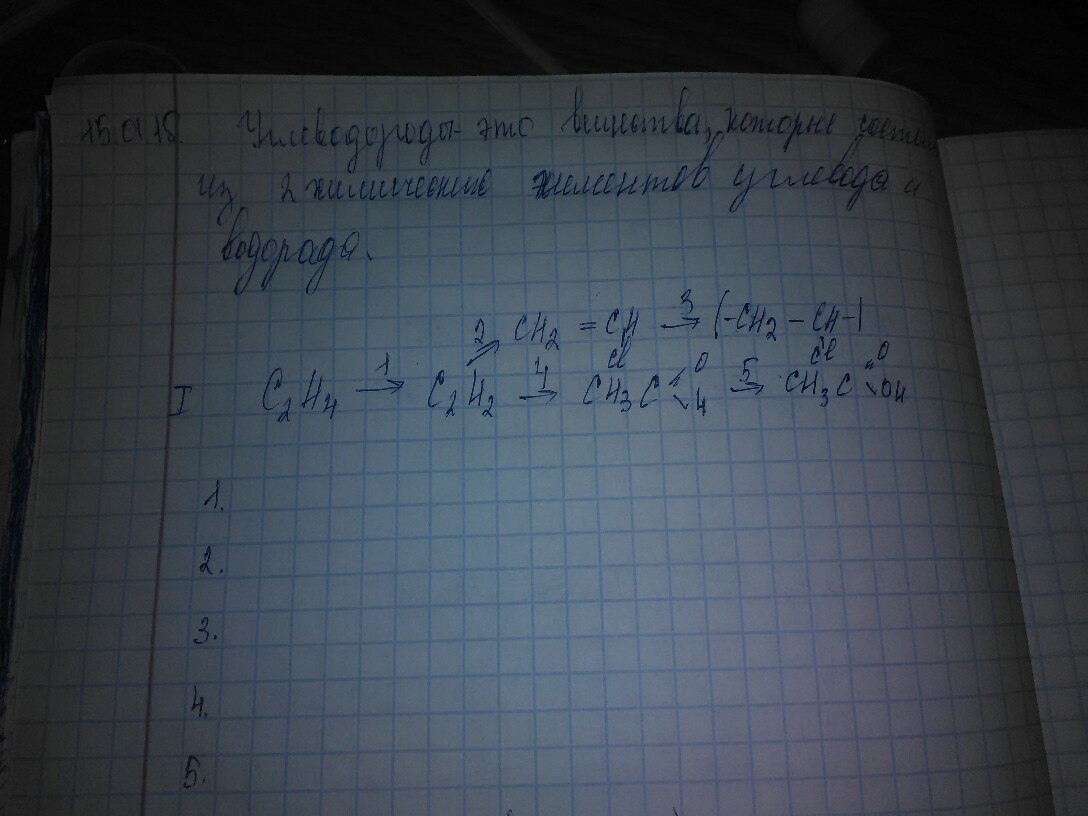 15.01.18. Углеводороды- это вещества, которые состоя
из 2 химические элементов углевода и
водорада.
2 CH2 = CH 3→ (-CH2 - CH-)
Cl Cl
I C2H4 1→ C2H2 4→ CH3C =O -H 5→ CH3C =O -OH
1.
2.
3.
4.
5.